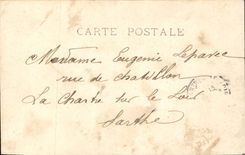 CARTE POSTALE
Madame Eugenie Leparee
rue de chatillon
La Chartre sur le Loir
Sarthe